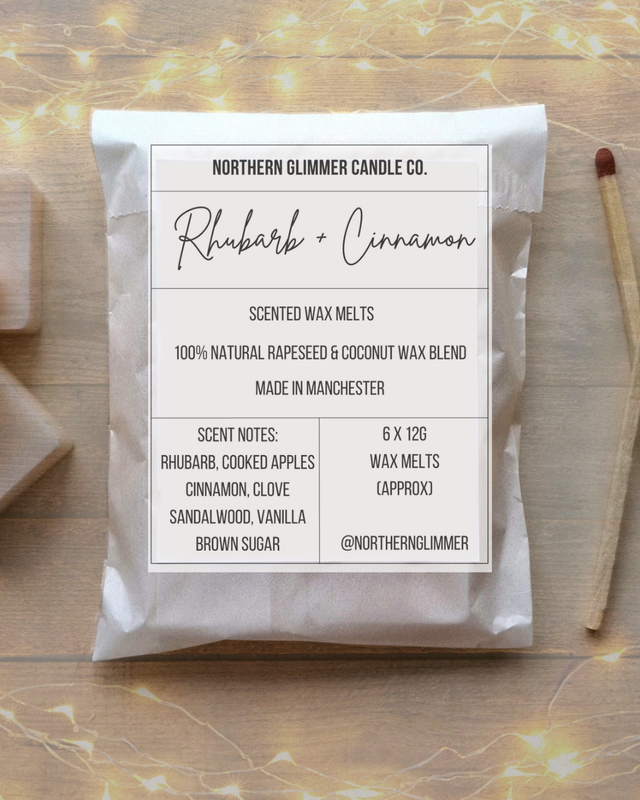 NORTHERN GLIMMER CANDLE CO.
Rhubarb + Cinnamon
SCENTED WAX MELTS
100% NATURAL RAPESEED & COCONUT WAX BLEND
MADE IN MANCHESTER
SCENT NOTES:
RHUBARB, COOKED APPLES
CINNAMON, CLOVE
SANDALWOOD, VANILLA
BROWN SUGAR
6 X 12G
WAX MELTS
(APPROX)
@NORTHERNGLIMMER